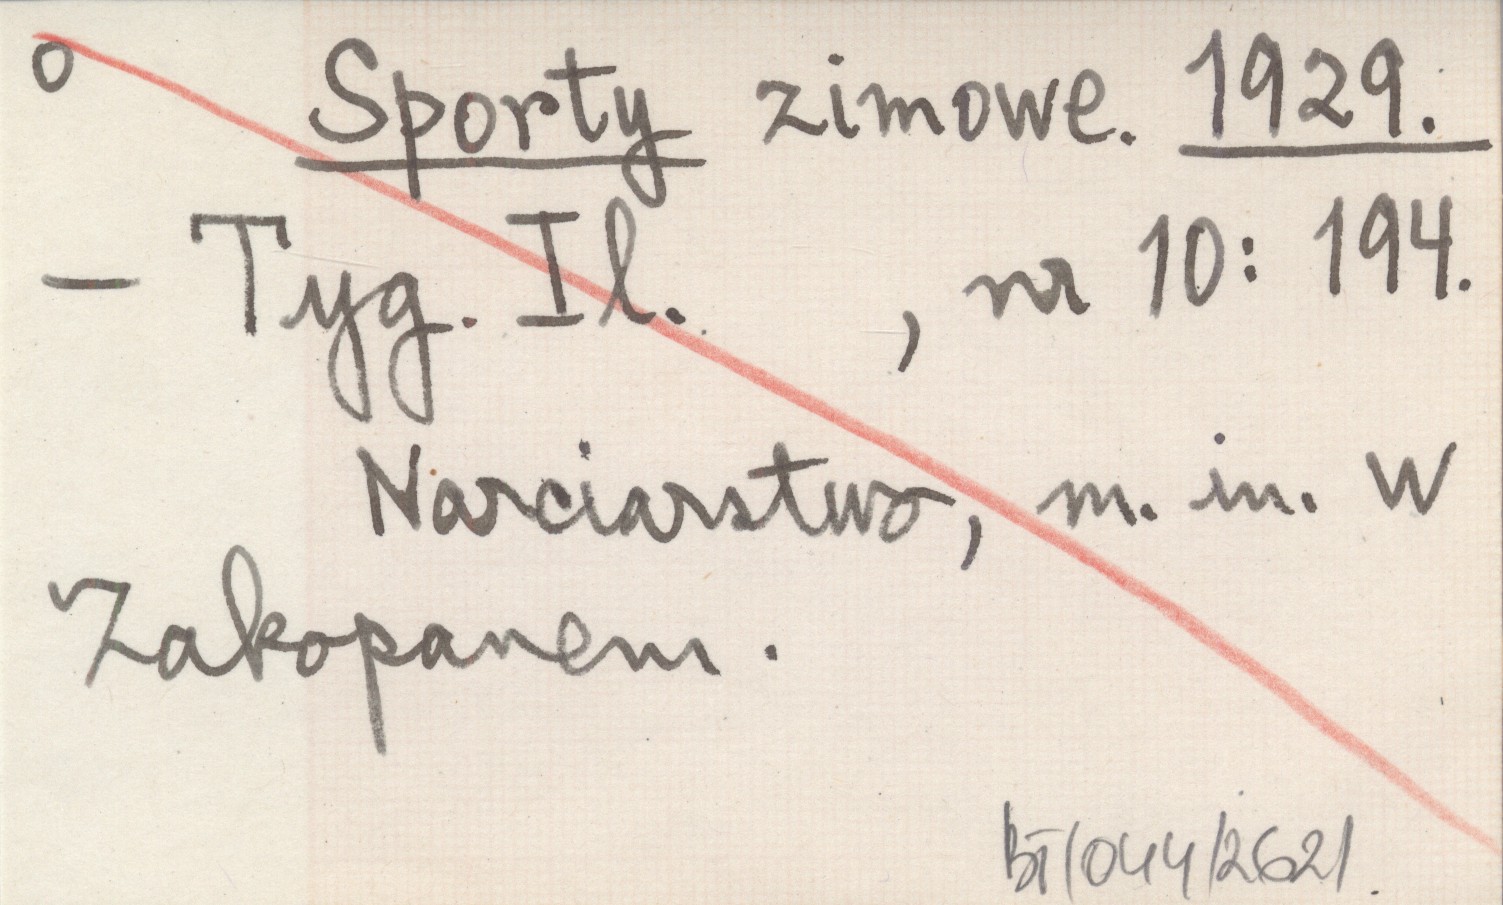 o Sporty zimowe. 1929.
– Tyg. Il. , nr 10: 194.
Narciarstwo, m. in. w
Zakopanem.
BT/044/2621.